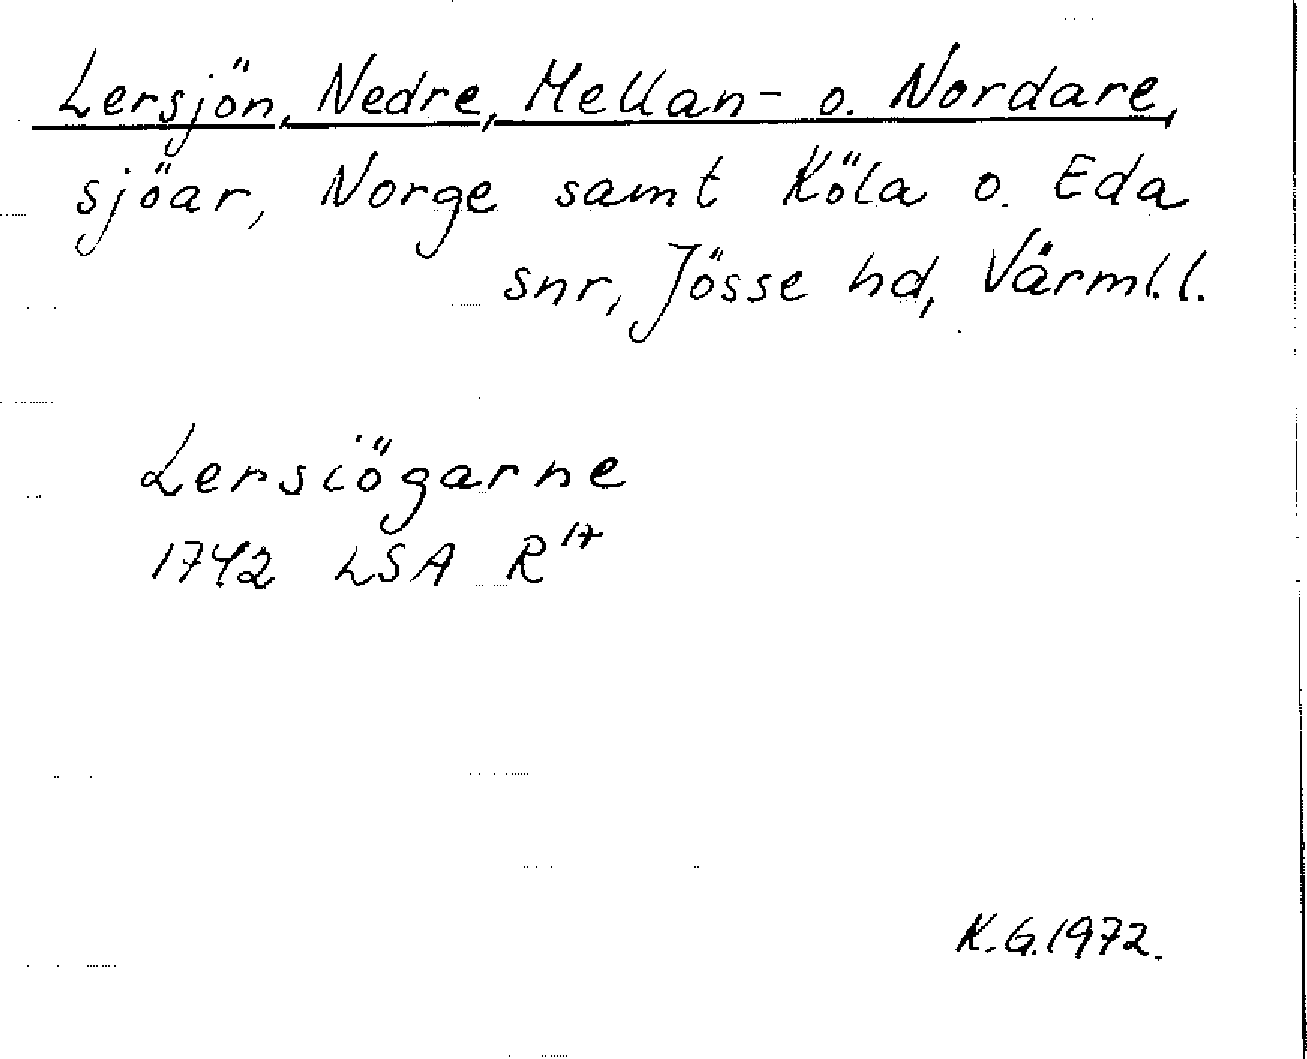 Lersjön, Nedre, Mellan- o. Nordare,
sjöar, Norge samt Köla o. Eda
snr, Jösse hd, Värml.l.
Lersiögarne
1742 LSA R 17
K.G.1972.